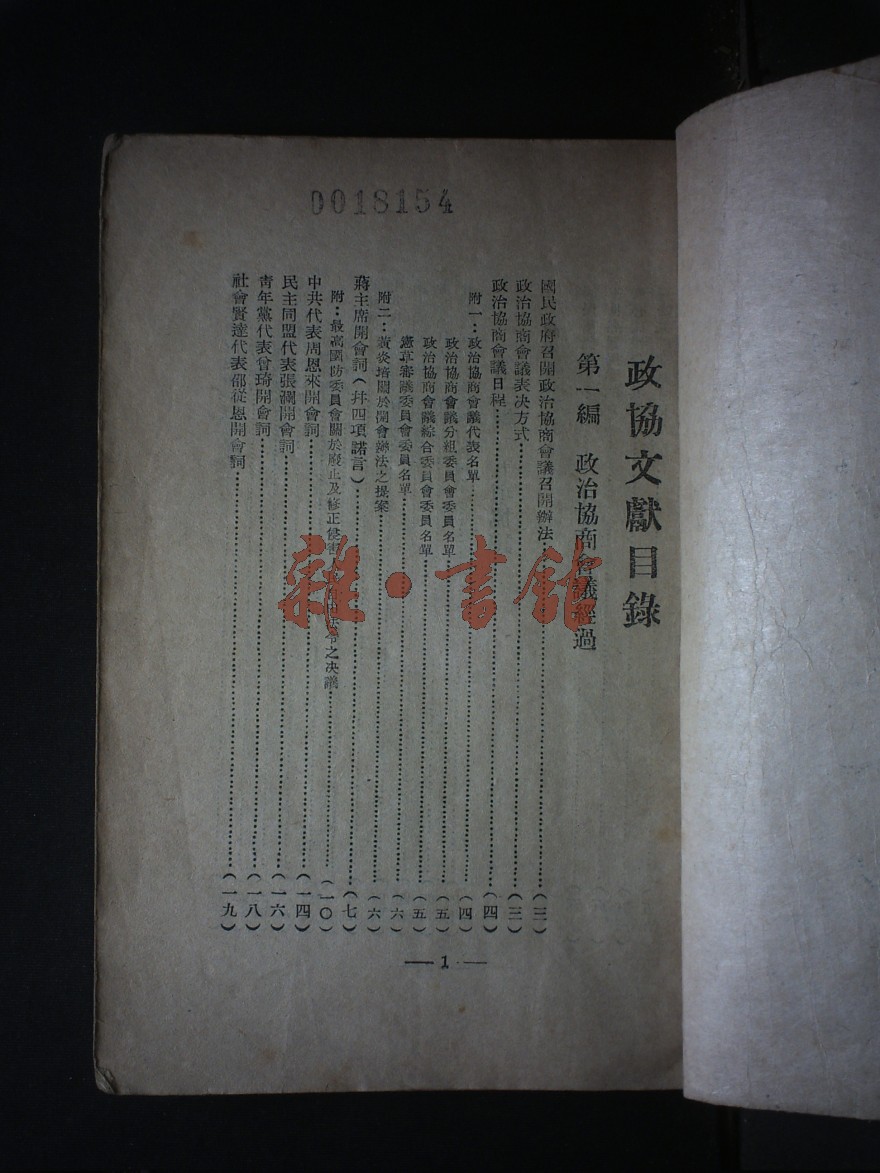 0018154
政協文獻目錄
第一編 政治協商會議經過
國民政府召開政治協商會議召開辦法……(三)
政治協商會議表決方式……(三)
政治協商會議日程……(四)
附一：政治協商會議代表名單……(四)
政治協商會議分組委員會委員名單……(五)
政治協商會議綜合委員會委員名單……(五)
憲草審議委員會委員名單……(六)
附二：黃炎培關於開會辦法之提案……(六)
蔣主席開會詞(幷四項諾言)……(七)
附：最高國防委員會關於廢止及修正侵害 令之決議……(一〇)
中共代表周恩來開會詞……(一四)
民主同盟代表張瀾開會詞……(一六)
靑年黨代表曾琦開會詞……(一八)
社會賢達代表邵從恩開會詞……(一九)
— 1 —
雜·書館